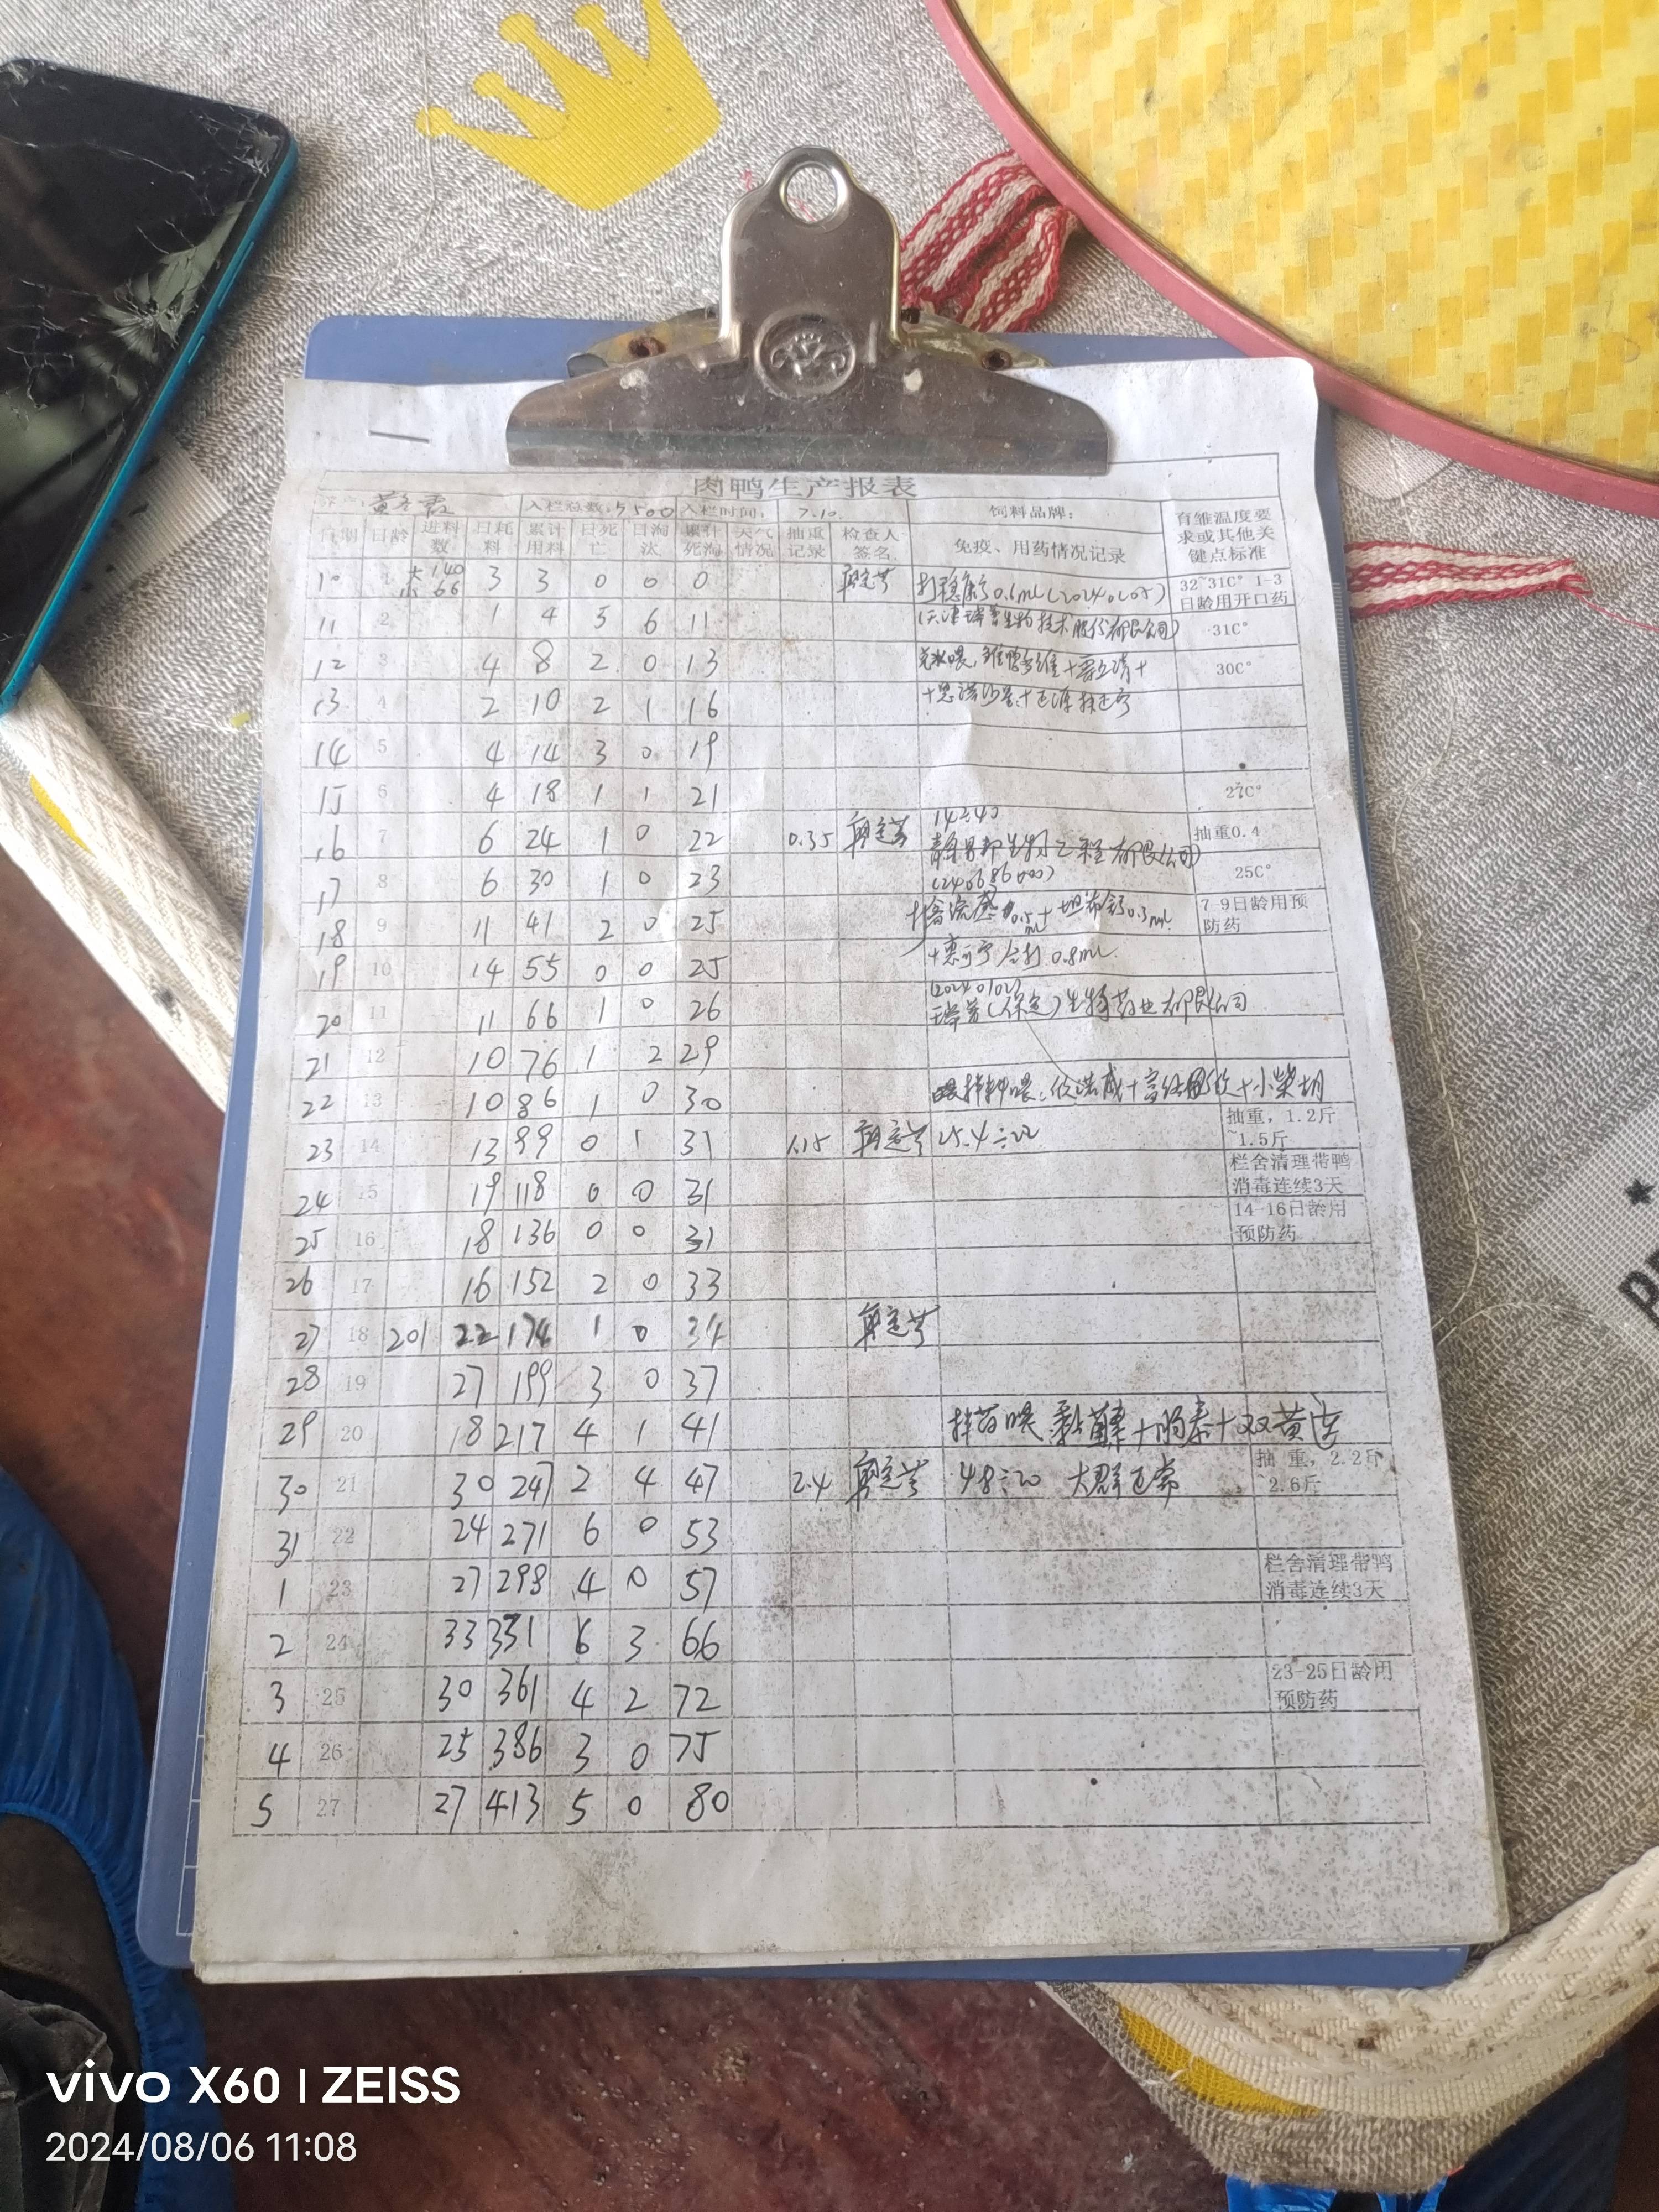 肉鸭生产报表
入栏总数:5500 入栏时间: 7.10. 饲料品牌:
日期 日龄 进料数 日耗料 累计用料 日死亡 日淘汰 累计死淘 天气情况 抽重记录 检查人签名 免疫、用药情况记录 育雏温度要求或其他关键点标准
10 1 大140 小66 3 3 0 0 0 32~31C° 1-3日龄用开口药
11 2 1 4 5 6 11 31C°
12 3 4 8 2 0 13 30C°
13 4 2 10 2 1 16
14 5 4 14 3 0 19
15 6 4 18 1 1 21 27C°
16 7 6 24 1 0 22 0.35 14÷40 抽重0.4
17 8 6 30 1 0 23 25C°
18 9 11 41 2 0 25 7-9日龄用预防药
19 10 14 55 0 0 25 0.8mL
20 11 11 66 1 0 26 (保定)生物药业有限公司
21 12 10 76 1 2 29
22 13 10 86 1 0 30 +小柴胡
23 14 13 99 0 1 31 1.15 25.4÷22 抽重，1.2斤~1.5斤
24 15 19 118 0 0 31 栏舍清理带鸭消毒连续3天
25 16 18 136 0 0 31 14-16日龄用预防药
26 17 16 152 2 0 33
27 18 201 22 174 1 0 34
28 19 27 199 3 0 37
29 20 18 217 4 1 41 拌药喂 +肠泰+双黄连
30 21 30 247 2 4 47 2.4 48÷20 大群正常 抽重，2.2斤~2.6斤
31 22 24 271 6 0 53
1 23 27 298 4 0 57 栏舍清理带鸭消毒连续3天
2 24 33 331 6 3 66
3 25 30 361 4 2 72 23-25日龄用预防药
4 26 25 386 3 0 75
5 27 27 413 5 0 80
vivo X60 | ZEISS
2024/08/06 11:08